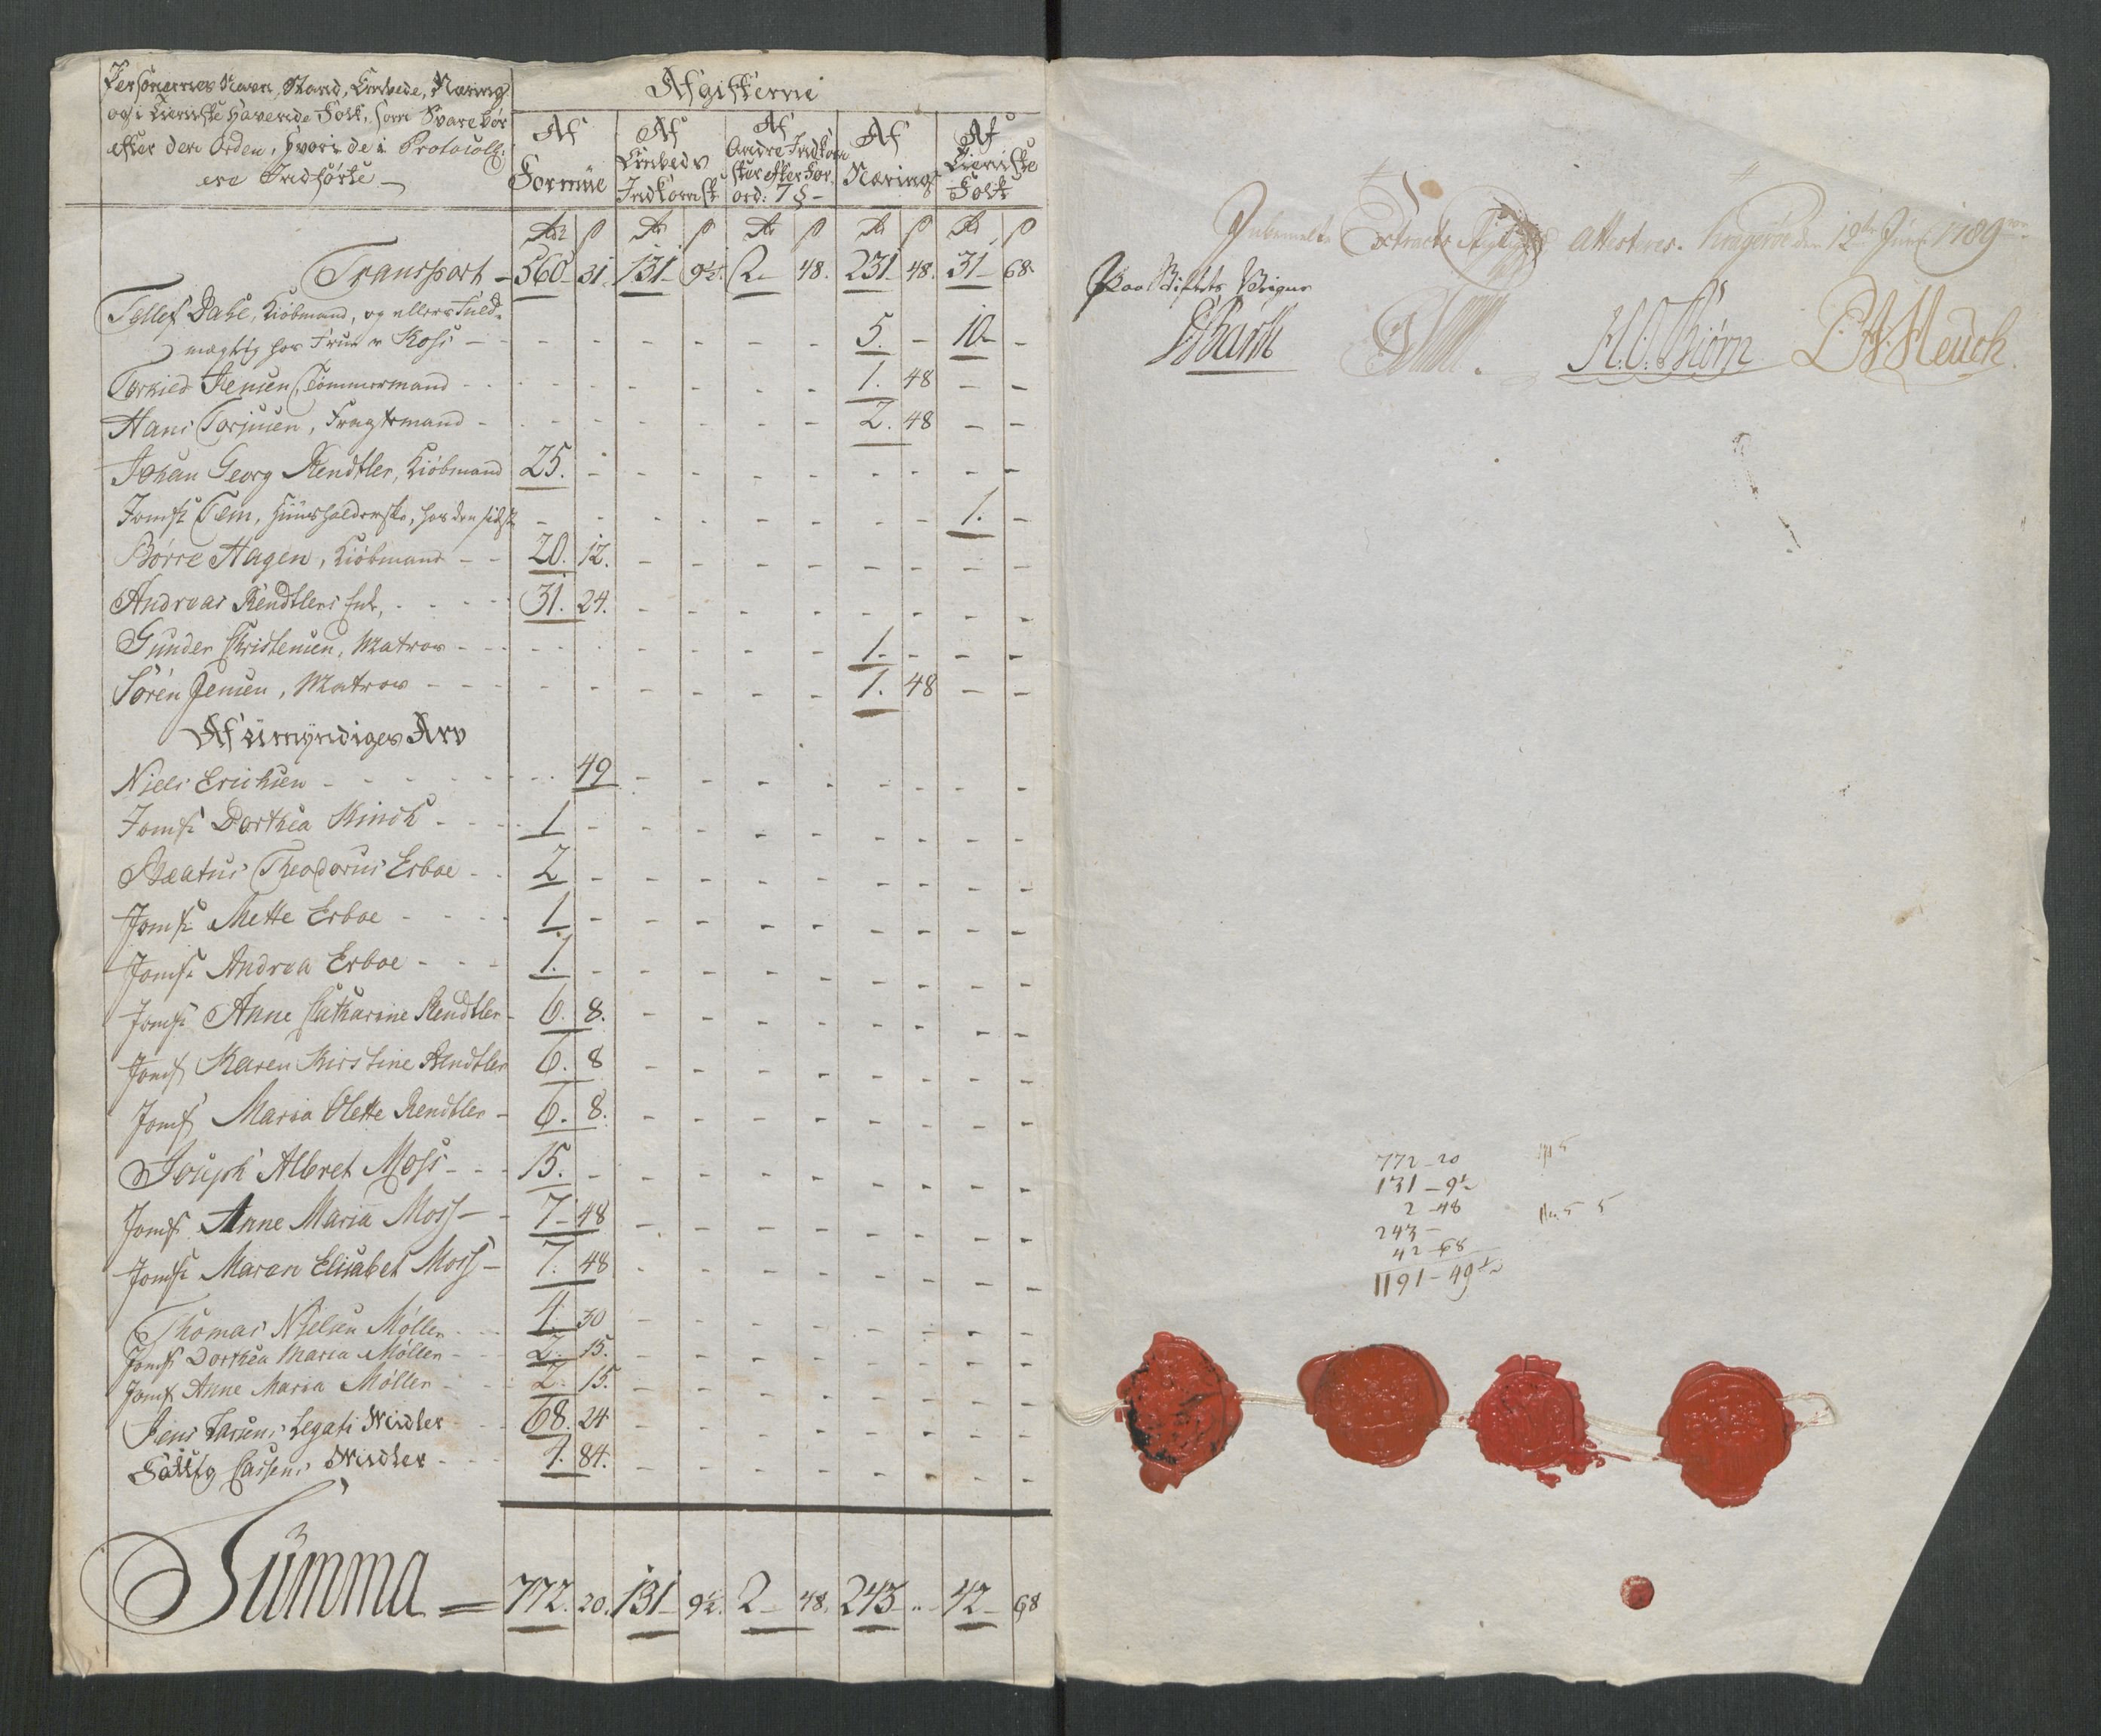 Personernes Navn, Stand, Embede, Næring
og i Tieniste havende Folk, som Svare bør
efter den Orden, hvori de i Protocoll:
ere Indførte
Afgifterne
Af Formue
Af Embeds Indkomst
Af Andre Indkomster efter For. ord: 7 §
Af Nærings
Af Tieniste Folk
Rdr ß Rd ß Rd ß Rd ß Rd ß
Transport - 560 - 31. 131 - 9½. 2 - 48. 231. 48. 31 - 68.
Tellef Dahl, Kiøbmand, og ellers Fuld-
mægtig hos Frue Moss - - 5. - 10 -
Torkild Jensen, Tømmermand - - 1. 48 - -
Hans Torjusen, Fragtemand - 2. 48 - -
Johan Georg Rendtler, Kiøbmand 25. -
Jomfr Tem, Huusholderske, hos den sidste 1. -
Børre Hagen, Kiøbmand - - 20. 12.
Andreas Rendtlers Enk, - - 31. 24.
Gunder Christensen, Matros - - 1. -
Søren Jensen, Matros - - 1. 48
Af umyndiges Arv
Niels Erichsen - - 49
Jomfr Dorthea Kinch - - 1 -
Beatus Theodorus Erboe - - 2 -
Jomfr Mette Erboe - - 1 -
Jomfr Andrea Erboe - - 1. -
Jomfr Anne Catharine Rendtler - 6. 8.
Jomf Karen Kirstine Rendtler 6. 8
Jomf Maria Olette Rendtler - 6. 8.
Joseph Albret Moss - - 15. -
Jomf Anne Maria Moss - 7 - 48
Jomfr Maren Elisabet Moss - 7. 48
Thomas Nielsen Møller - - 4. 30
Jomfr Dorthea Maria Møller - 2. 15.
Jomf Anne Maria Møller - 2. 15.
Jens Larsens Legati Midler - - 68. 24
Sallig Cassens Midler - - 4. 84.
Summa = 772. 20. 131 - 9½. 2 - 48. 243 - .. 42 - 68
Indbemelte Extracts Rigtighed Attesteres. Kragerøe den 12te Junii 1789
Paa Skiftets Veigne
Barth H. O. Biørn Heuch
772 - 20
131 - 9½
2 - 48
243 -
42 - 68
1191 - 49½